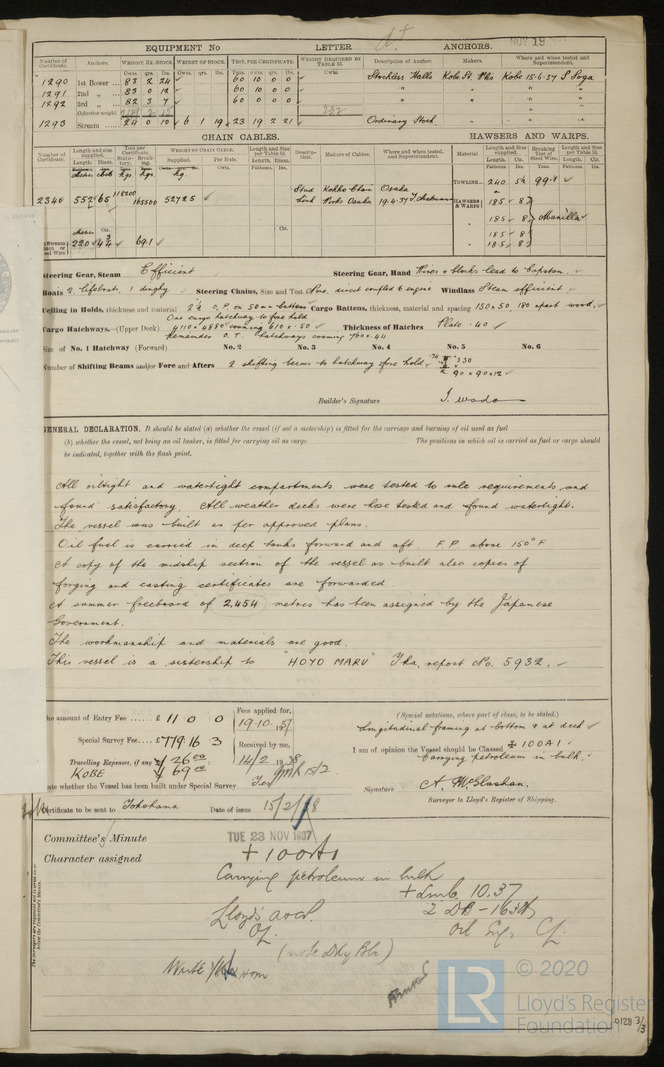 EQUIPMENT No LETTER ANCHORS.
NOV 19
Number of Certificate. Anchors. WEIGHT, EX. STOCK. WEIGHT OF STOCK. TEST, PER CERTIFICATE. WEIGHT REQUIRED BY TABLE 53. Description of Anchor. Makers. Where and when tested and Superintendent.
Cwts. qrs. lbs. Cwts. qrs. lbs. Cwts.
1290 1st Bower 83 2 24 60 10 0 0 Stockless Halls Kobe St. Wks Kobe 15.6.37 S. Soga
1291 2nd " 83 0 12 60 10 0 0 " " "
1292 3rd " 82 3 7 60 0 0 0 " " "
Collective weight.
1293 Stream 24 0 10 6 1 19 23 19 2 21 Ordinary Stock
CHAIN CABLES. HAWSERS AND WARPS.
Number of Certificate. Length and size supplied. Test per Certificate. WEIGHT OF CHAIN CABLE. Length and size per Table 53. Description. Makers of Cables. Where and when tested, and Superintendent. Material Length and size supplied. Breaking Test of Steel Wire. Length and Size per Table 53.
Length. Diam. Statutory. Breaking. Supplied. Per Rule. Length. Diam. Fathoms. Ins. Tons. Fathoms. Ins.
kgs. kgs. kg.
2346 552 65 118200 165500 52725 Stud Link Kokko Chain Works Osaka Osaka 19.4.37
TOWLING 240 5¼ 99.9
HAWSERS & WARPS 185 8
" 185 8 Manilla
" 185 8
" 185 8
220 4¾ 69.1
Steering Gear, Steam Efficient Steering Gear, Hand Wires & blocks lead to Capstan.
Boats 2 lifeboats, 1 dinghy Steering Chains, Size and Test None, direct coupled to engine Windlass Steam efficient
Ceiling in Holds, thickness and material 2½ O.P. on 50 mm battens Cargo Battens, thickness, material and spacing 150 x 50, 180 apart wood.
One cargo hatchway to fore hold
Cargo Hatchways.—(Upper Deck). 4110 x 4880 coaming 610 x .50 Thickness of Hatches Plate .40
Remainder O.T. hatchways coaming 760 x .44
Size of No. 1 Hatchway (Forward) No. 2 No. 3 No. 4 No. 5 No. 6
Number of Shifting Beams and/or Fore and Afters 2 shifting beams to hatchway fore hold .34 330
90 x 90 x 12
Builder's Signature
GENERAL DECLARATION. It should be stated (a) whether the vessel (if not a motorship) is fitted for the carriage and burning of oil used as fuel
(b) whether the vessel, not being an oil tanker, is fitted for carrying oil as cargo The positions in which oil is carried as fuel or cargo should
be indicated, together with the flash point.
All oiltight and watertight compartments were tested to rule requirements and
found satisfactory. All weather decks were hose tested and found watertight.
The vessel was built as per approved plans.
Oil fuel is carried in deep tanks forward and aft. F.P. above 150° F
A copy of the midship section of the vessel as built also copies of
forging and casting certificates are forwarded
A summer freeboard of 2,454 metres has been assigned by the Japanese
Government.
The workmanship and materials are good.
This vessel is a sistership to "HOYO MARU" Yka. report No. 5932.
The amount of Entry Fee £ 11 0 0 Fees applied for, 19.10.37
Special Survey Fee £ 779.16 3 Received by me,
Travelling Expenses, if any 26.00 14/2 1938
KOBE 69.00
State whether the Vessel has been built under Special Survey Yes
Certificate to be sent to Yokohama Date of issue 15/2/38
(Special notations, where part of class, to be stated.)
Longitudinal framing at bottom & at deck
I am of opinion the Vessel should be Classed +100A1
Carrying petroleum in bulk.
Signature A. McGlashan.
Surveyor to Lloyd's Register of Shipping.
Committee's Minute TUE 23 NOV 1937
Character assigned +100A1
Carrying petroleum in bulk
+LMC 10.37
Lloyd's A&CP. 2 DB - 163 lb
OL. Oil Eng. CL.
(note Dky Blr)
© 2020
LR
Lloyd's Register
Foundation
9128 3/3